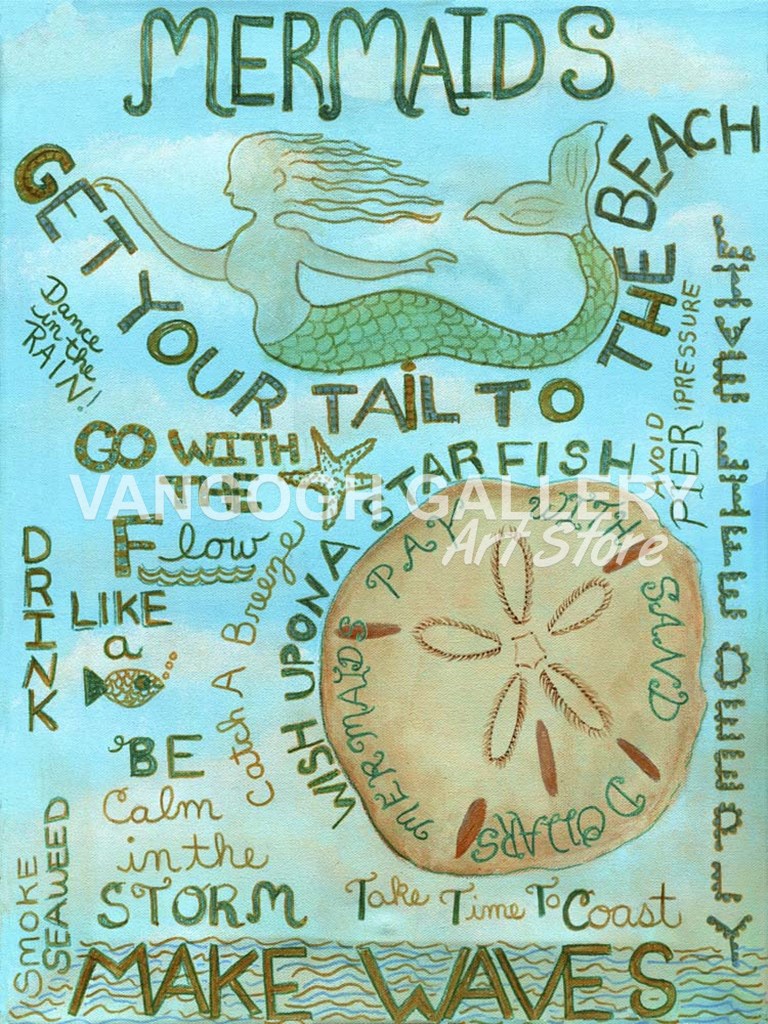 MERMAIDS
GET YOUR TAIL TO THE BEACH
Dance
in the
RAIN!
AVOID
PIER PRESSURE
GO WITH
THE
Flow
WISH UPON A STARFISH
MERMAIDS PAY WITH SAND DOLLARS
VANGOGH GALLERY
Art Store
DRINK
LIKE
a
Catch A Breeze
BE
Calm
in the
STORM
SMOKE
SEAWEED
Take Time To Coast
MAKE WAVES